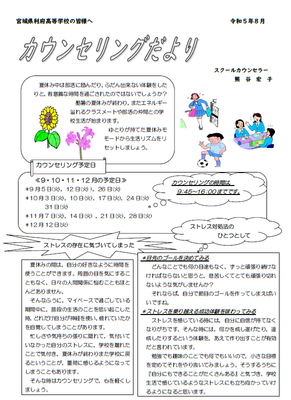 宮城県利府高等学校の皆様へ
令和5年8月
カウンセリングだより
スクールカウンセラー
熊谷 宏子
夏休み中は部活に励んだり、ふだん出来ない体験をした
り、有意義な時間を過ごされたのではないでしょうか?
酷暑の夏休みが終わり、またエネルギー
溢れるクラスメートや部活の仲間との学
校生活が始まります。
ゆとりが持てた夏休みモ
モードから生活リズムをリ
セットしましょう。
カウンセリング予定日
≪9・10・11・12月の予定日≫
カウンセリングの時間は、
9:45~16:00までです。
+9月5日(火)、12日(火)、26日(火)
+10月3日(火)、10日(火)、17日(火)、24日(火)
31日(火)
+11月7日(火)、14日(火)、21日(火)、28日(火)
+12月12日(火)
ストレス対処法の
ひとつとして
ストレスの存在に気づいてしまった
夏休みの間は、自分の好きなように時間を
使うことができます。周囲の目を気にするこ
ともなく、日々の人間関係に悩むこともほと
んどありません。
そんなふうに、マイペースで過ごしている
期間中に、普段の生活のことを思い起こした
時、どれだけ自分が神経を使い、疲れていたか
を自覚してしまうことがあります。
忙しさや気持ちの張りに隠れて、気付いて
いなかった自分のストレスに、学校を離れた
ことで気付き、夏休みが終わりまた学校に戻
るということが、重荷に感じるようになって
しまうこともあります。
そんな時はカウンセリングで、心を軽くし
ましょう。
★目先のゴールを決めてみる
どんなことでも何の目途もなく、ずっと頑張り続けな
ければならないと思うと、息苦しくてとても頑張りきれ
ないような気がしませんか?
それならば、自分で節目のゴールを作ってしまえばい
いですね。
★ストレスを乗り越える成功体験を味わってみる
ストレスを感じている時には、自分に自信が持てなく
なりがちです。そんな時には、何かを成し遂げたり、達
成したりするという体験を、あえて作り出すことが有効
だと言われています。
勉強でも趣味のことでも何でもいいので、小さな目標
を定めてそれをやり抜いてみましょう。そうするうちに
「自分にもできることがたくさんある」と気づき、学校
生活で感じているようなストレスにも立ち向かっていけ
るようになると思います。